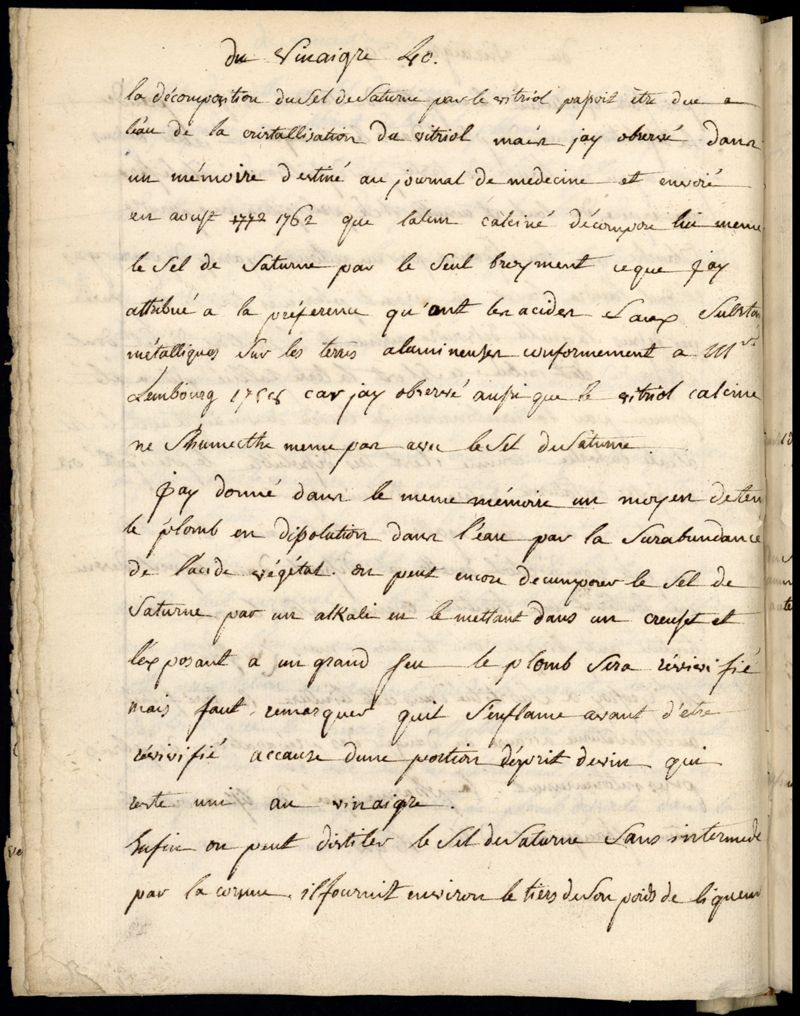 du vinaigre 40.
la décomposition du Sel de Saturne par le vitriol paroit etre due a
leau de la cristallisation du vitriol mais jay observé dans
un mémoire destiné au journal de medecine et envoié
en aoust 1772 1762 que lalun calciné décompose lui meme
le Sel de Saturne par le Seul broyment ce que jay
attribué a la préference qu'ont les acides Saux Substan
métalliques Sur les terres alumineuses conformement a Mr
Lembourg 1758 car jay observé aussi que le vitriol calciné
ne Shumecte meme pas avec le Sel de Saturne.
Jay donné dans le meme mémoire un moyen de ten
le plomb en dissolution dans l'eau par la Surabundance
de lacide végétal. on peut encore decomposer le Sel de
Saturne par un alkali en le mettant dans un creuset et
l'exposant a un grand feu le plomb Sera révivifié
mais faut remarquer quil Senflame avant d'etre
révivifié accause dune portion desprit de vin qui
reste uni au vinaigre.
Enfin on peut distiler le Sel de Saturne Sans intermede
par la cornue. il fournit environ le tiers de Son poids de liqueur